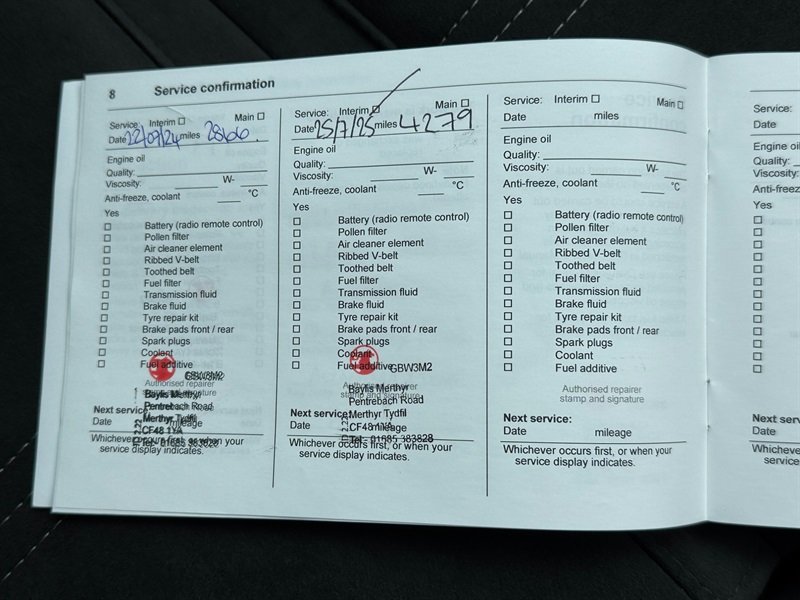 8 Service confirmation
Service: Interim ☐ Main ☐
Date 22/09/24 miles
Engine oil
Quality:
Viscosity: W-
Anti-freeze, coolant °C
Yes
☐ Battery (radio remote control)
☐ Pollen filter
☐ Air cleaner element
☐ Ribbed V-belt
☐ Toothed belt
☐ Fuel filter
☐ Transmission fluid
☐ Brake fluid
☐ Tyre repair kit
☐ Brake pads front / rear
☐ Spark plugs
☐ Coolant
☐ Fuel additive
GBW3M2
Authorised repairer
Baylis Merthyr
Pentrebach Road
Next service:
Merthyr Tydfil
Date mileage
CF48 1YA
Tel: 01685 383828
Whichever occurs first, or when your
service display indicates.
Service: Interim ☐ Main ☐
Date 25/7/25 miles 4279
Engine oil
Quality:
Viscosity: W-
Anti-freeze, coolant °C
Yes
☐ Battery (radio remote control)
☐ Pollen filter
☐ Air cleaner element
☐ Ribbed V-belt
☐ Toothed belt
☐ Fuel filter
☐ Transmission fluid
☐ Brake fluid
☐ Tyre repair kit
☐ Brake pads front / rear
☐ Spark plugs
☐ Coolant
☐ Fuel additive GBW3M2
Authorised repairer
Baylis Merthyr
stamp and signature
Pentrebach Road
Next service:
Merthyr Tydfil
Date mileage
CF48 1YA
Tel: 01685 383828
Whichever occurs first, or when your
service display indicates.
Service: Interim ☐ Main ☐
Date miles
Engine oil
Quality:
Viscosity: W-
Anti-freeze, coolant °C
Yes
☐ Battery (radio remote control)
☐ Pollen filter
☐ Air cleaner element
☐ Ribbed V-belt
☐ Toothed belt
☐ Fuel filter
☐ Transmission fluid
☐ Brake fluid
☐ Tyre repair kit
☐ Brake pads front / rear
☐ Spark plugs
☐ Coolant
☐ Fuel additive
Authorised repairer
stamp and signature
Next service:
Date mileage
Whichever occurs first, or when your
service display indicates.
Service:
Date
Engine oil
Quality:
Viscosity:
Anti-freeze
Yes
Next serv
Date
Whicheve
service